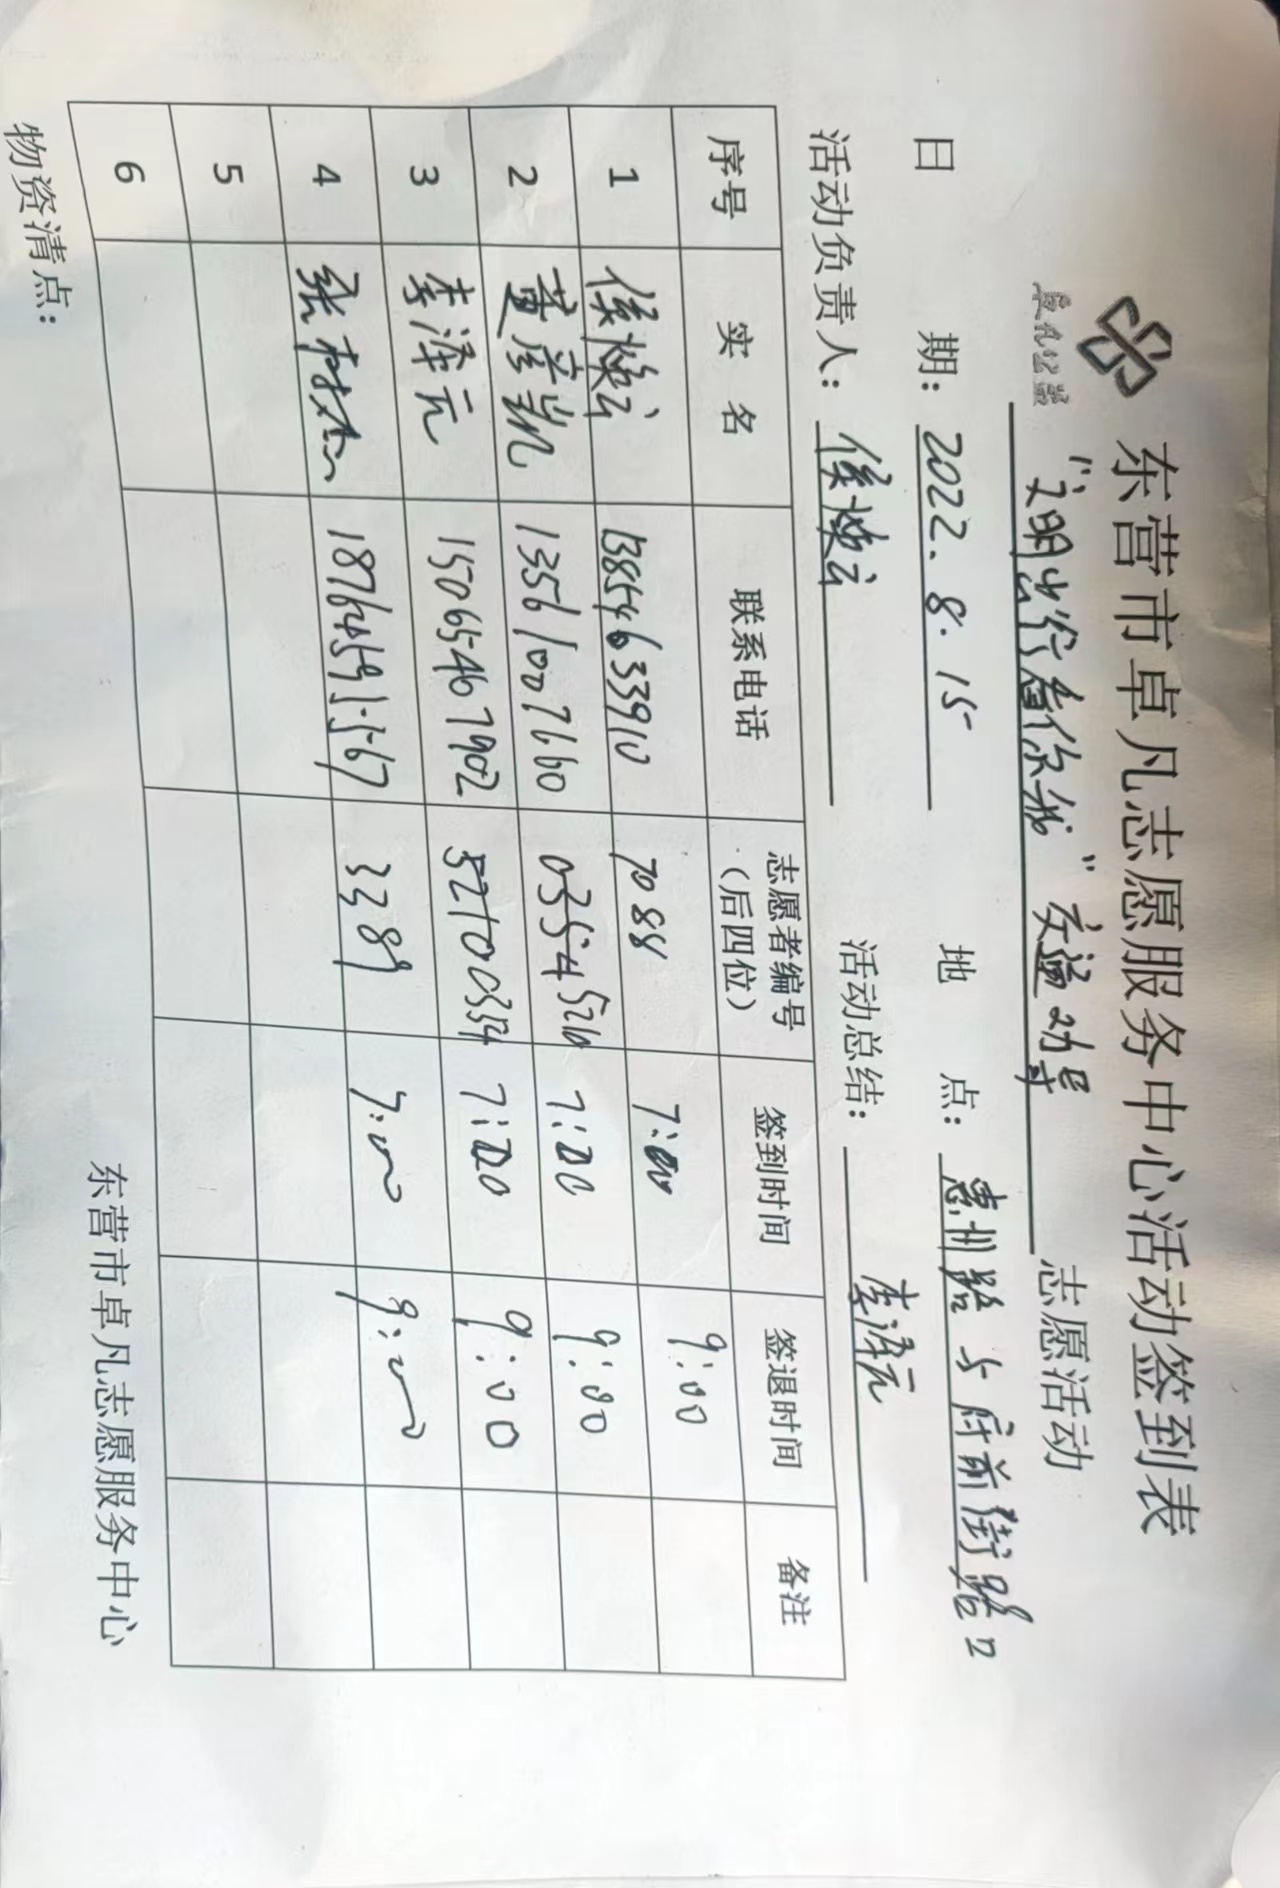 东营市卓凡志愿服务中心活动签到表
卓凡公益
“文明出行有你我”交通劝导 志愿活动
日 期：2022.8.15 地 点：惠州路与府前街路口
活动负责人：侯焕云 活动总结：李泽元
序号 实 名 联系电话 志愿者编号（后四位） 签到时间 签退时间 备注
1 侯焕云 13854633910 7088 7:00 9:00
2 13561007660 0354 5210 7:00 9:00
3 李泽元 15065467902 5210 0354 7:00 9:00
4 张 18764591567 3289 7:00 9:00
5
6
物资清点：
东营市卓凡志愿服务中心